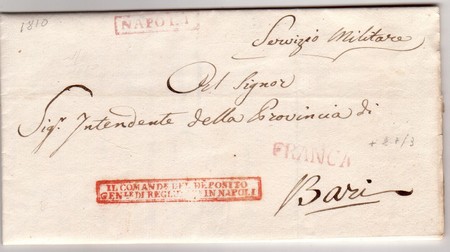 1810
NAPOLI
Servizio Militare
Al Signor
Sigr. Intendente della Provincia di
+2+/3
FRANCA
IL COMAND. DEL DEPOSITO
IN NAPOLI
Bari